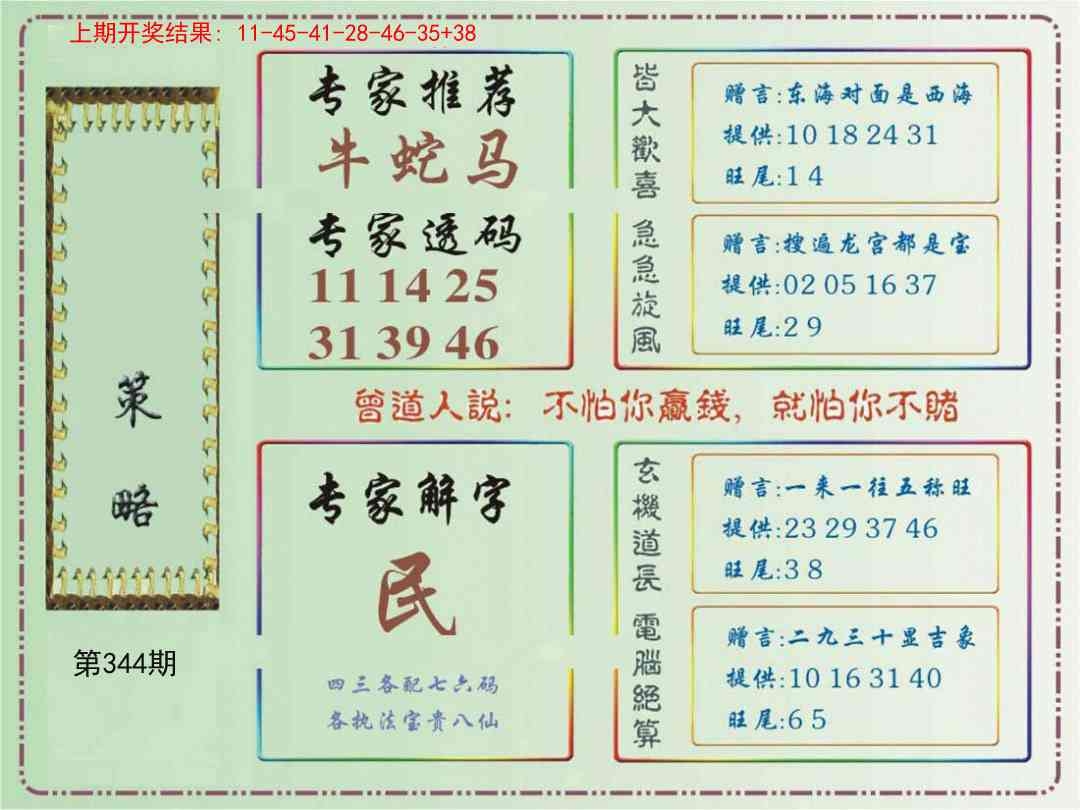 上期开奖结果: 11-45-41-28-46-35+38
策略
第344期
专家推荐
牛蛇马
专家透码
11 14 25
31 39 46
皆大歡喜
赠言:东海对面是西海
提供:10 18 24 31
旺尾:1 4
急急旋風
赠言:搜遍龙宫都是宝
提供:02 05 16 37
旺尾:2 9
曾道人説: 不怕你贏錢, 就怕你不賭
专家解字
民
四三各配七六码
各执法宝贵八仙
玄機道長
赠言:一来一往五称旺
提供:23 29 37 46
旺尾:3 8
電腦絕算
赠言:二九三十显吉象
提供:10 16 31 40
旺尾:6 5